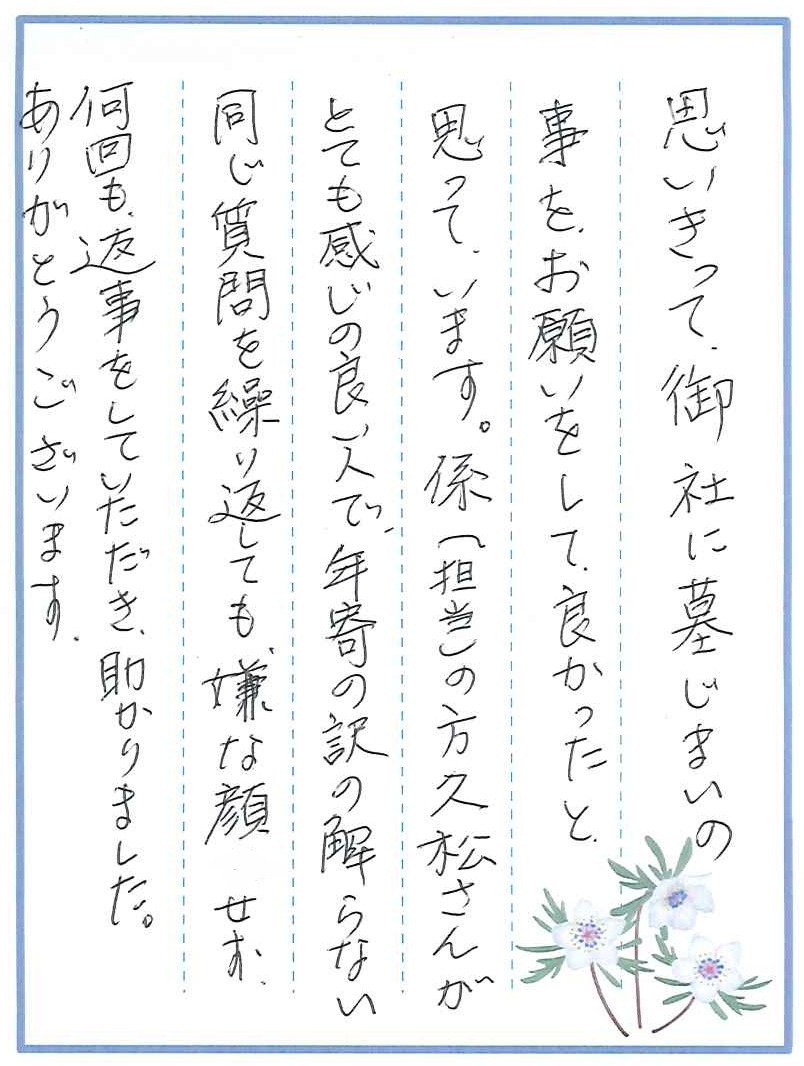 思いきって、御社に墓じまいの
事を、お願いをして、良かったと、
思って、います。係（担当）の方久松さんが
とても感じの良い人で、年寄の訳の解らない
同じ質問を繰り返しても、嫌な顔せず、
何回も、返事をしていただき、助かりました。
ありがとうございます。